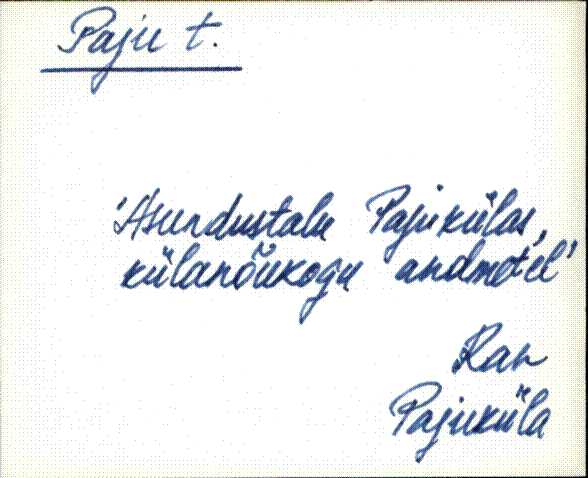 Paju t.
'Asundustalu Pajukülas,
külanõukogu andmetel'
Ran
Pajuküla